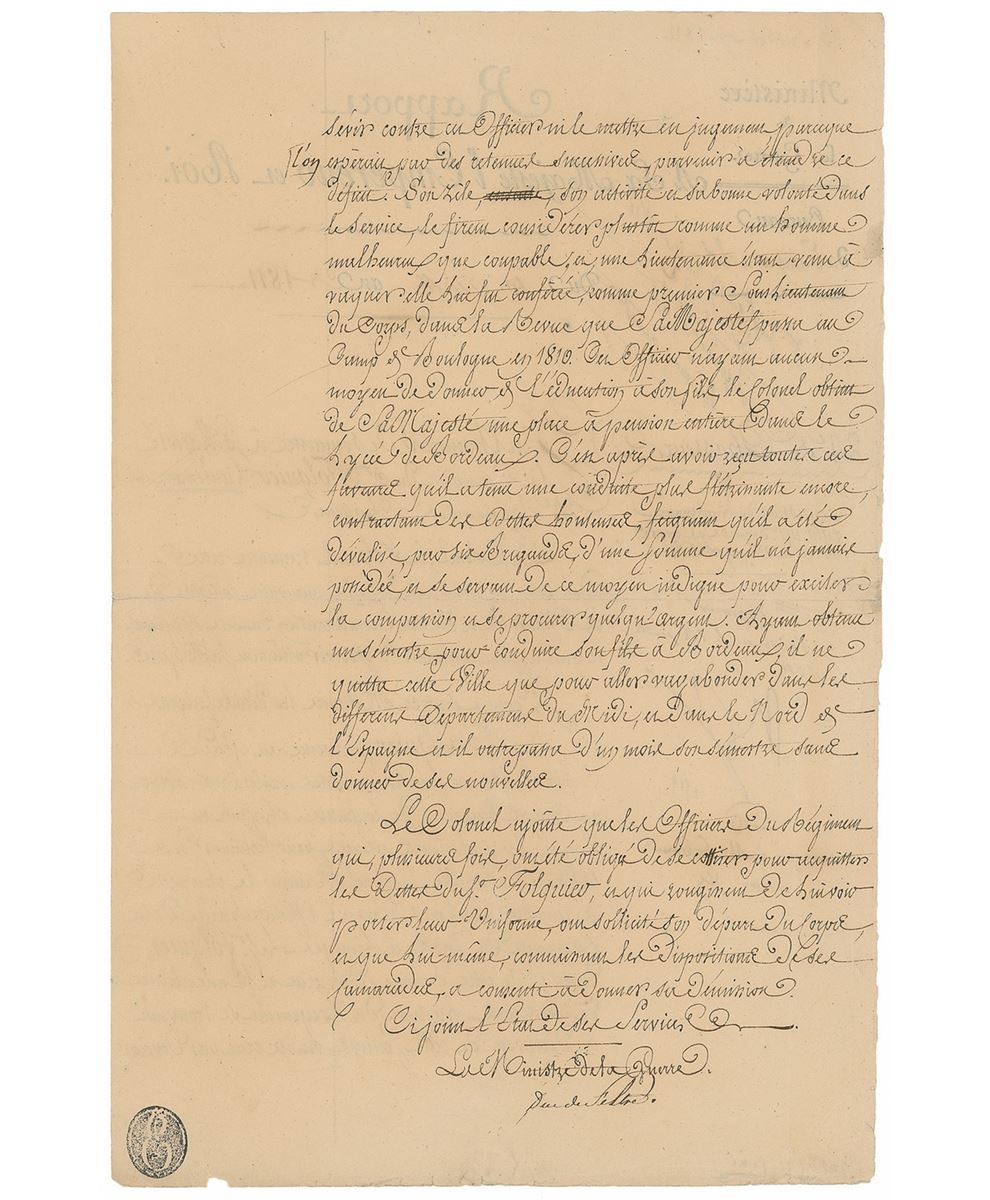 sévir contre cet Officier ni le mettre en jugement parceque
l'on espérait par des retenues successives parvenir à éteindre ce
déficit. Son Zèle, ensuite, son activité et sa bonne volonté dans
le service, le firent considérer plustôt comme un homme
malheureux que coupable, et une Lieutenance étant venu à
vaquer elle lui fut conférée, comme premier Sous Lieutenant
du Corps, dans la Revue que Sa Majesté passa au
Camp de Boulogne en 1810. Cet Officier n'ayant aucun
moyen de donner de l'éducation à son fils, le Colonel obtint
de Sa Majesté une place à pension entière dans le
Lycée de Bordeaux. C'est après avoir reçu toutes ces
faveurs qu'il a tenu une conduite plus flétrissante encore,
contractant des Dettes honteuses, feignant qu'il a été
dévalisé, par six Brigands, d'une somme qu'il n'a jamais
possédée, et se servant de ce moyen indigne pour exciter
la compassion et se procurer quelqu'argent. Ayant obtenu
un sémestre pour conduire son fils à Bordeaux, il ne
quitta cette Ville que pour aller vagabonder dans les
différens Départemens du Midi, et dans le Nord de
l'Espagne et il outrepassa d'un mois son sémestre sans
donner de ses nouvelles.
Le Colonel ajoute que les Officiers du Régiment
qui, plusieurs fois, ont été obligés de se cottiser pour acquitter
les Dettes du Sr. Folquier, et qui rougissent de lui voir
porter leur Uniforme, ont sollicité son départ du Corps,
et que lui même, connaissant les Dispositions de ses
Camarades, a consenti à donner sa démission.
Ci joint l'Etat de ses Services
Le Ministre de la Guerre.
Duc de Feltre.